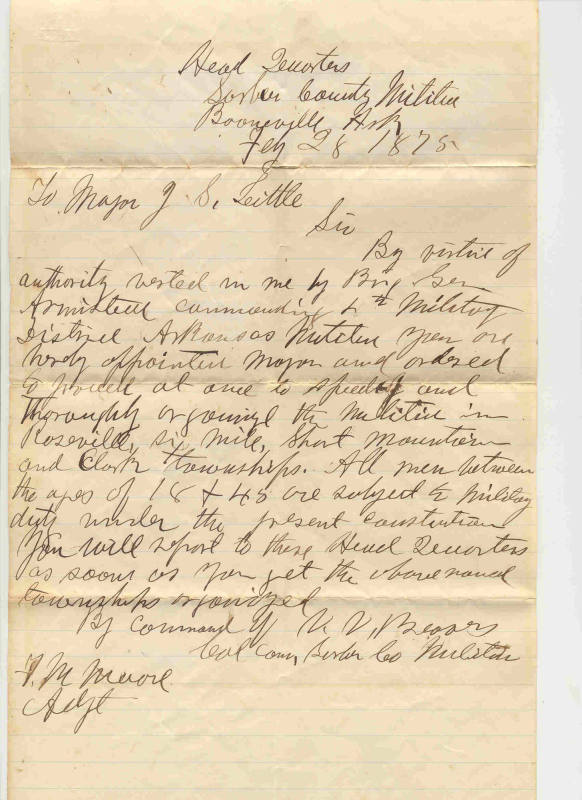 Head Quarters
County Militia
Booneville Ark
Feby 28 1875
To Major J. S. Little
Sir
By virtue of
authority vested in me by Brig Gen
Armistead commanding 4th Military
District Arkansas Militia you are
hereby appointed Major and ordered
to proceed at once to speedily and
thoroughly organize the Militia in
Roseville, six mile, Short Mountain
and Clark townships. All men between
the ages of 18 & 45 are subject to military
duty under the present constitution
You will report to these Head Quarters
as soon as you get the above named
townships organized
By command of V. Beavers
Col Com, Co Militia
F. M Moore
Adjt